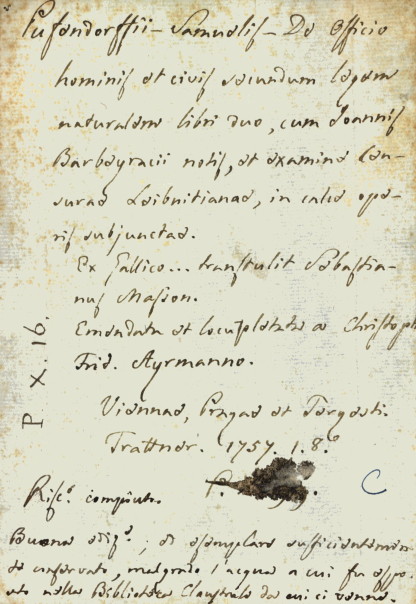 Pufendorffii - Samuelis - De Officio
hominis et civis secundum legem
naturalem libri duo, cum Joannis
Barbeyracii notis, et examine Cen-
surae Leibnitianae, in calce ope-
ris subjunctae.
Ex Gallico... transtulit Sebastia-
nus Masson.
Emendata et locupletata a Christoph
Frid. Ayrmanno.
Viennae, Pragae et Tergesti.
Trattner. 1757. 1. 8.°
P X. 16.
C
Risc.°
Buona ediz.e; ed esemplare sufficientemen
te conservato, malgrado l'acqua a cui fu espo
sto nella Biblioteca Claustrale da cui ci venne.